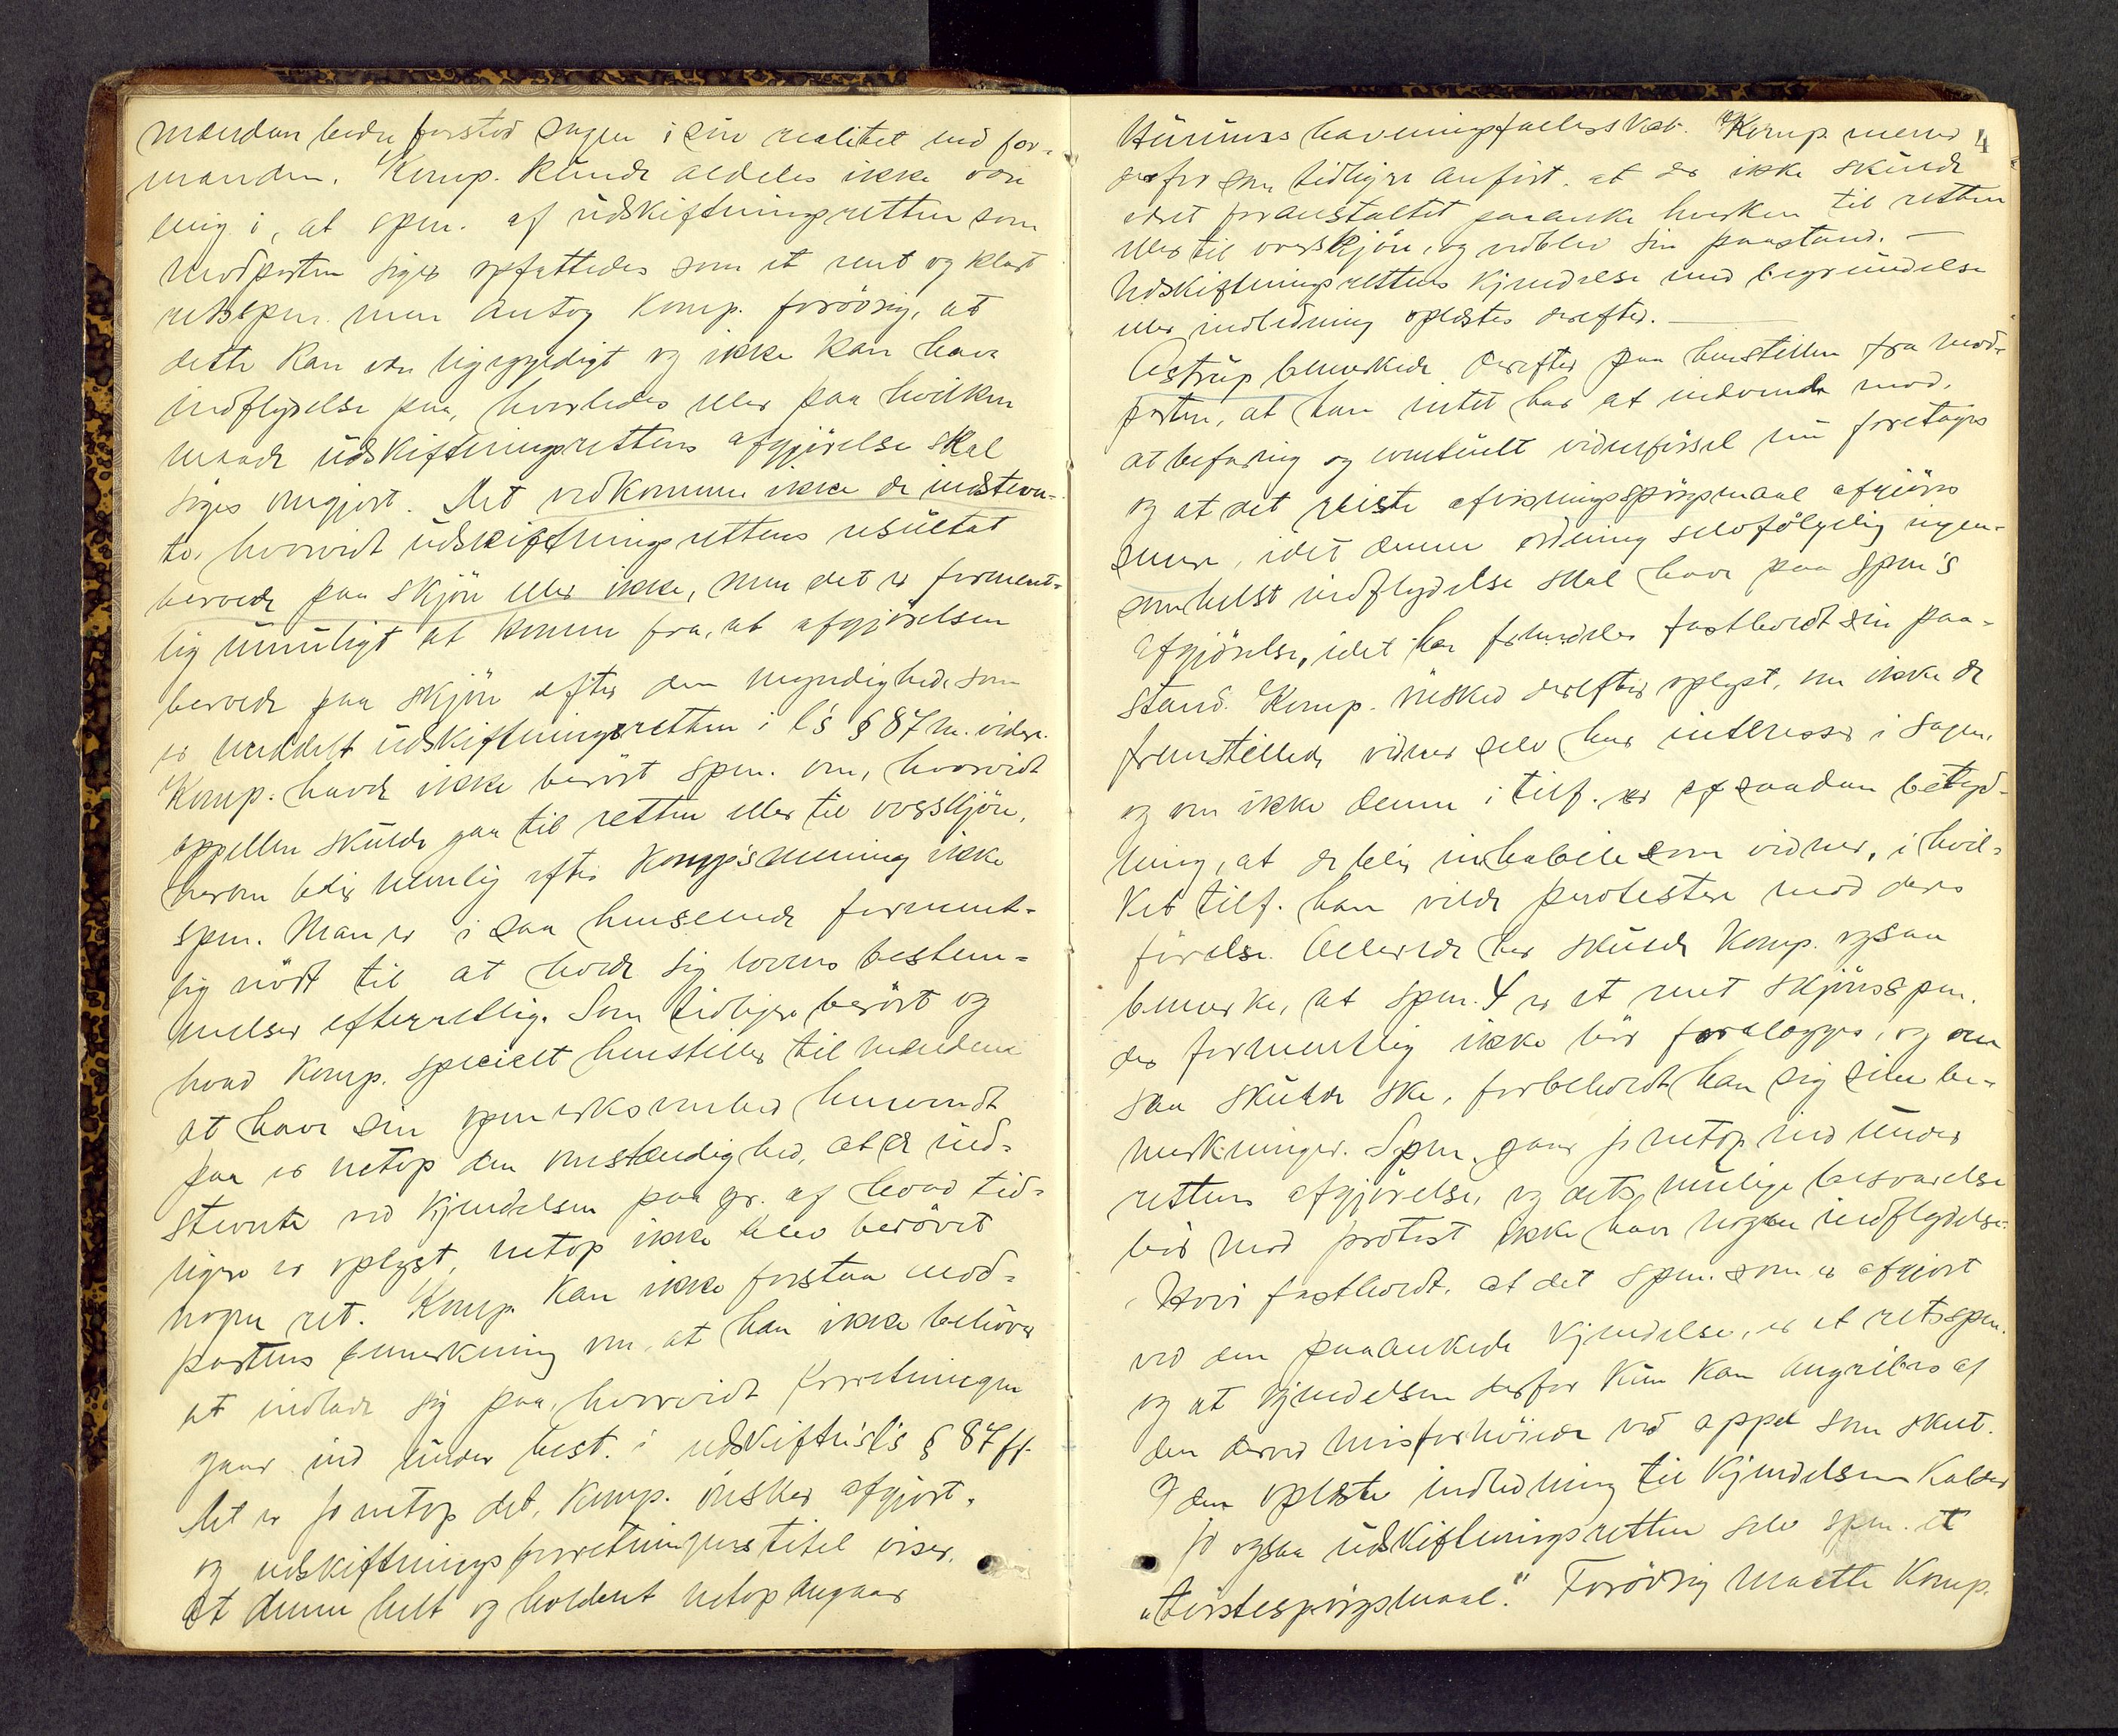 mændene bedre forstod sagen i sin realitet end for-
manden. Komp. kunde aldeles ikke være
enig i, at spm. af udskiftningsretten som
modparten siger opfattedes som et rent og klart
retsspm. men antog Komp. forøvrig, at
dette kan være ligegyldigt og ikke kan have
indflydelse paa, hvorledes eller paa hvilken
maade udskiftningsrettens afgjørelse skal
søges omgjort. Det vedkommer ikke de indstevn-
te, hvorvidt udskiftningsrettens resultat
beroede paa skjøn eller ikke, men det er forment-
lig umuligt at komme fra, at afgjørelsen
beroede paa skjøn efter den myndighed, som
er meddelt udskiftningsretten i l's § 87 m. videre.
Komp. havde ikke berørt spm. om, hvorvidt
appellen skulde gaa til retten eller til overskjøn,
herom blir nemlig efter Komp's mening ikke
spm. Man er i saa henseende forment-
lig nødt til at holde sig lovens bestem-
melser efterrettelig. Som tidligere berørt og
hvad Komp. specielt henstiller til mændene
at have sin opmerksomhed henvendt
paa er netop den omstændighed, at de ind-
stevnte ved kjendelsen paa gr. af hvad tid-
ligere er oplyst, netop ikke blev berøvet
nogen ret. Komp. kan ikke forstaa mod-
partens bemerkning om, at han ikke behøver
at indlade sig paa, hvorvidt forretningen
gaar ind under best. i udskiftn's l's § 87 ff.
Det er jo netop det, Komp. ønsker afgjort,
og udskiftningsforretningens titel viser,
at denne helt og holdent netop angaar
4
Hurums havningsfællesskab. Komp. mener
derfor som tidligere anført, at der ikke skulde
været foranstaltet paaanke hverken til retten
eller til overskjøn, og vedblev sin paastand. —
Udskiftningsrettens kjendelse med begrundelse
eller indledning oplæstes derefter. —
Astrup bemerkede derefter paa henstillen fra mod-
parten, at han intet har at indvende mod,
at befaring og eventuelt vidneførsel nu foretages
og at det reiste afvisningsspørgsmaal afgjøres
senere, idet denne ordning selvfølgelig ingen-
somhelst indflydelse skal have paa spm's
afgjørelse, idet han fremdeles fastholdt sin paa-
stand. Komp. ønsked derefter oplyst, om ikke de
fremstillede vidner selv har interesser i sagen,
og om ikke denne i tilf. er af saadan betyd-
ning, at de blir inhabile som vidner, i hvil-
ket tilf. han vilde protestere mod deres
førelse. Allerede her skulde Komp. ogsaa
bemerke, at spm. 4 er et rent skjønsspm.
der formentlig ikke bør forelægges, og om
saa skulde ske, forbeholdt han sig sine be-
merkninger. Spm. gaar jo netop ind under
rettens afgjørelse, og dets mulige besvarelse
bør mod protest ikke have nogen indflydelse.
Hovi fastholdt, at det spm. som er afgjort
ved den paaankede kjendelse, er et retsspm.
og at kjendelsen derfor kun kan angribes af
den derved misfornøiede ved appel som skeet.
I den oplæste indledning til kjendelsen kalder
jo ogsaa udskiftningsretten selv spm. et
"tvistespørgsmaal." Forøvrig maatte Komp.